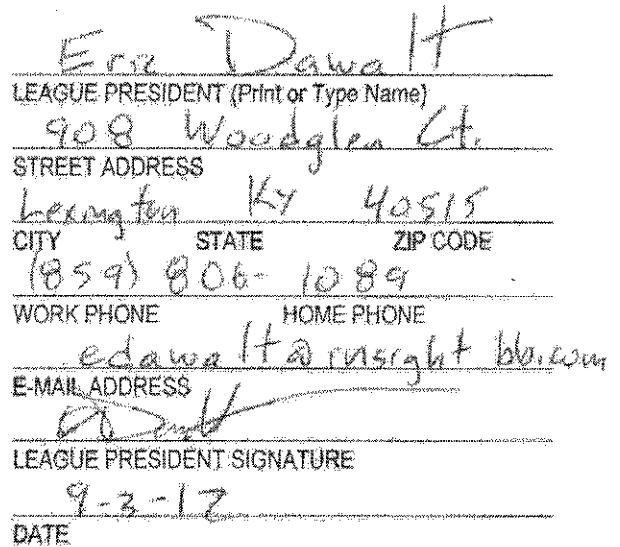 Eric Dawalt
LEAGUE PRESIDENT (Print or Type Name)
908 Woodglen Ct.
STREET ADDRESS
Lexington Ky 40515
CITY STATE ZIP CODE
(859) 806-1089
WORK PHONE HOME PHONE
edawalt@insightbb.com
E-MAIL ADDRESS
LEAGUE PRESIDENT SIGNATURE
9-2-12
DATE